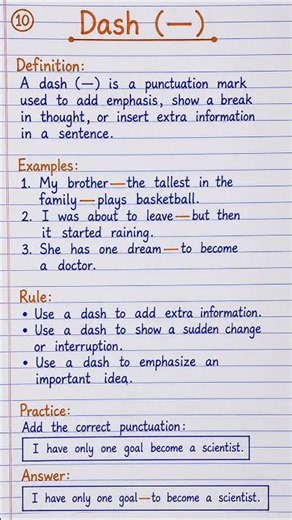 10
Dash (—)
Definition:
A dash (—) is a punctuation mark
used to add emphasis, show a break
in thought, or insert extra information
in a sentence.
Examples:
1. My brother—the tallest in the
family—plays basketball.
2. I was about to leave—but then
it started raining.
3. She has one dream—to become
a doctor.
Rule:
• Use a dash to add extra information.
• Use a dash to show a sudden change
or interruption.
• Use a dash to emphasize an
important idea.
Practice:
Add the correct punctuation:
I have only one goal become a scientist.
Answer:
I have only one goal—to become a scientist.